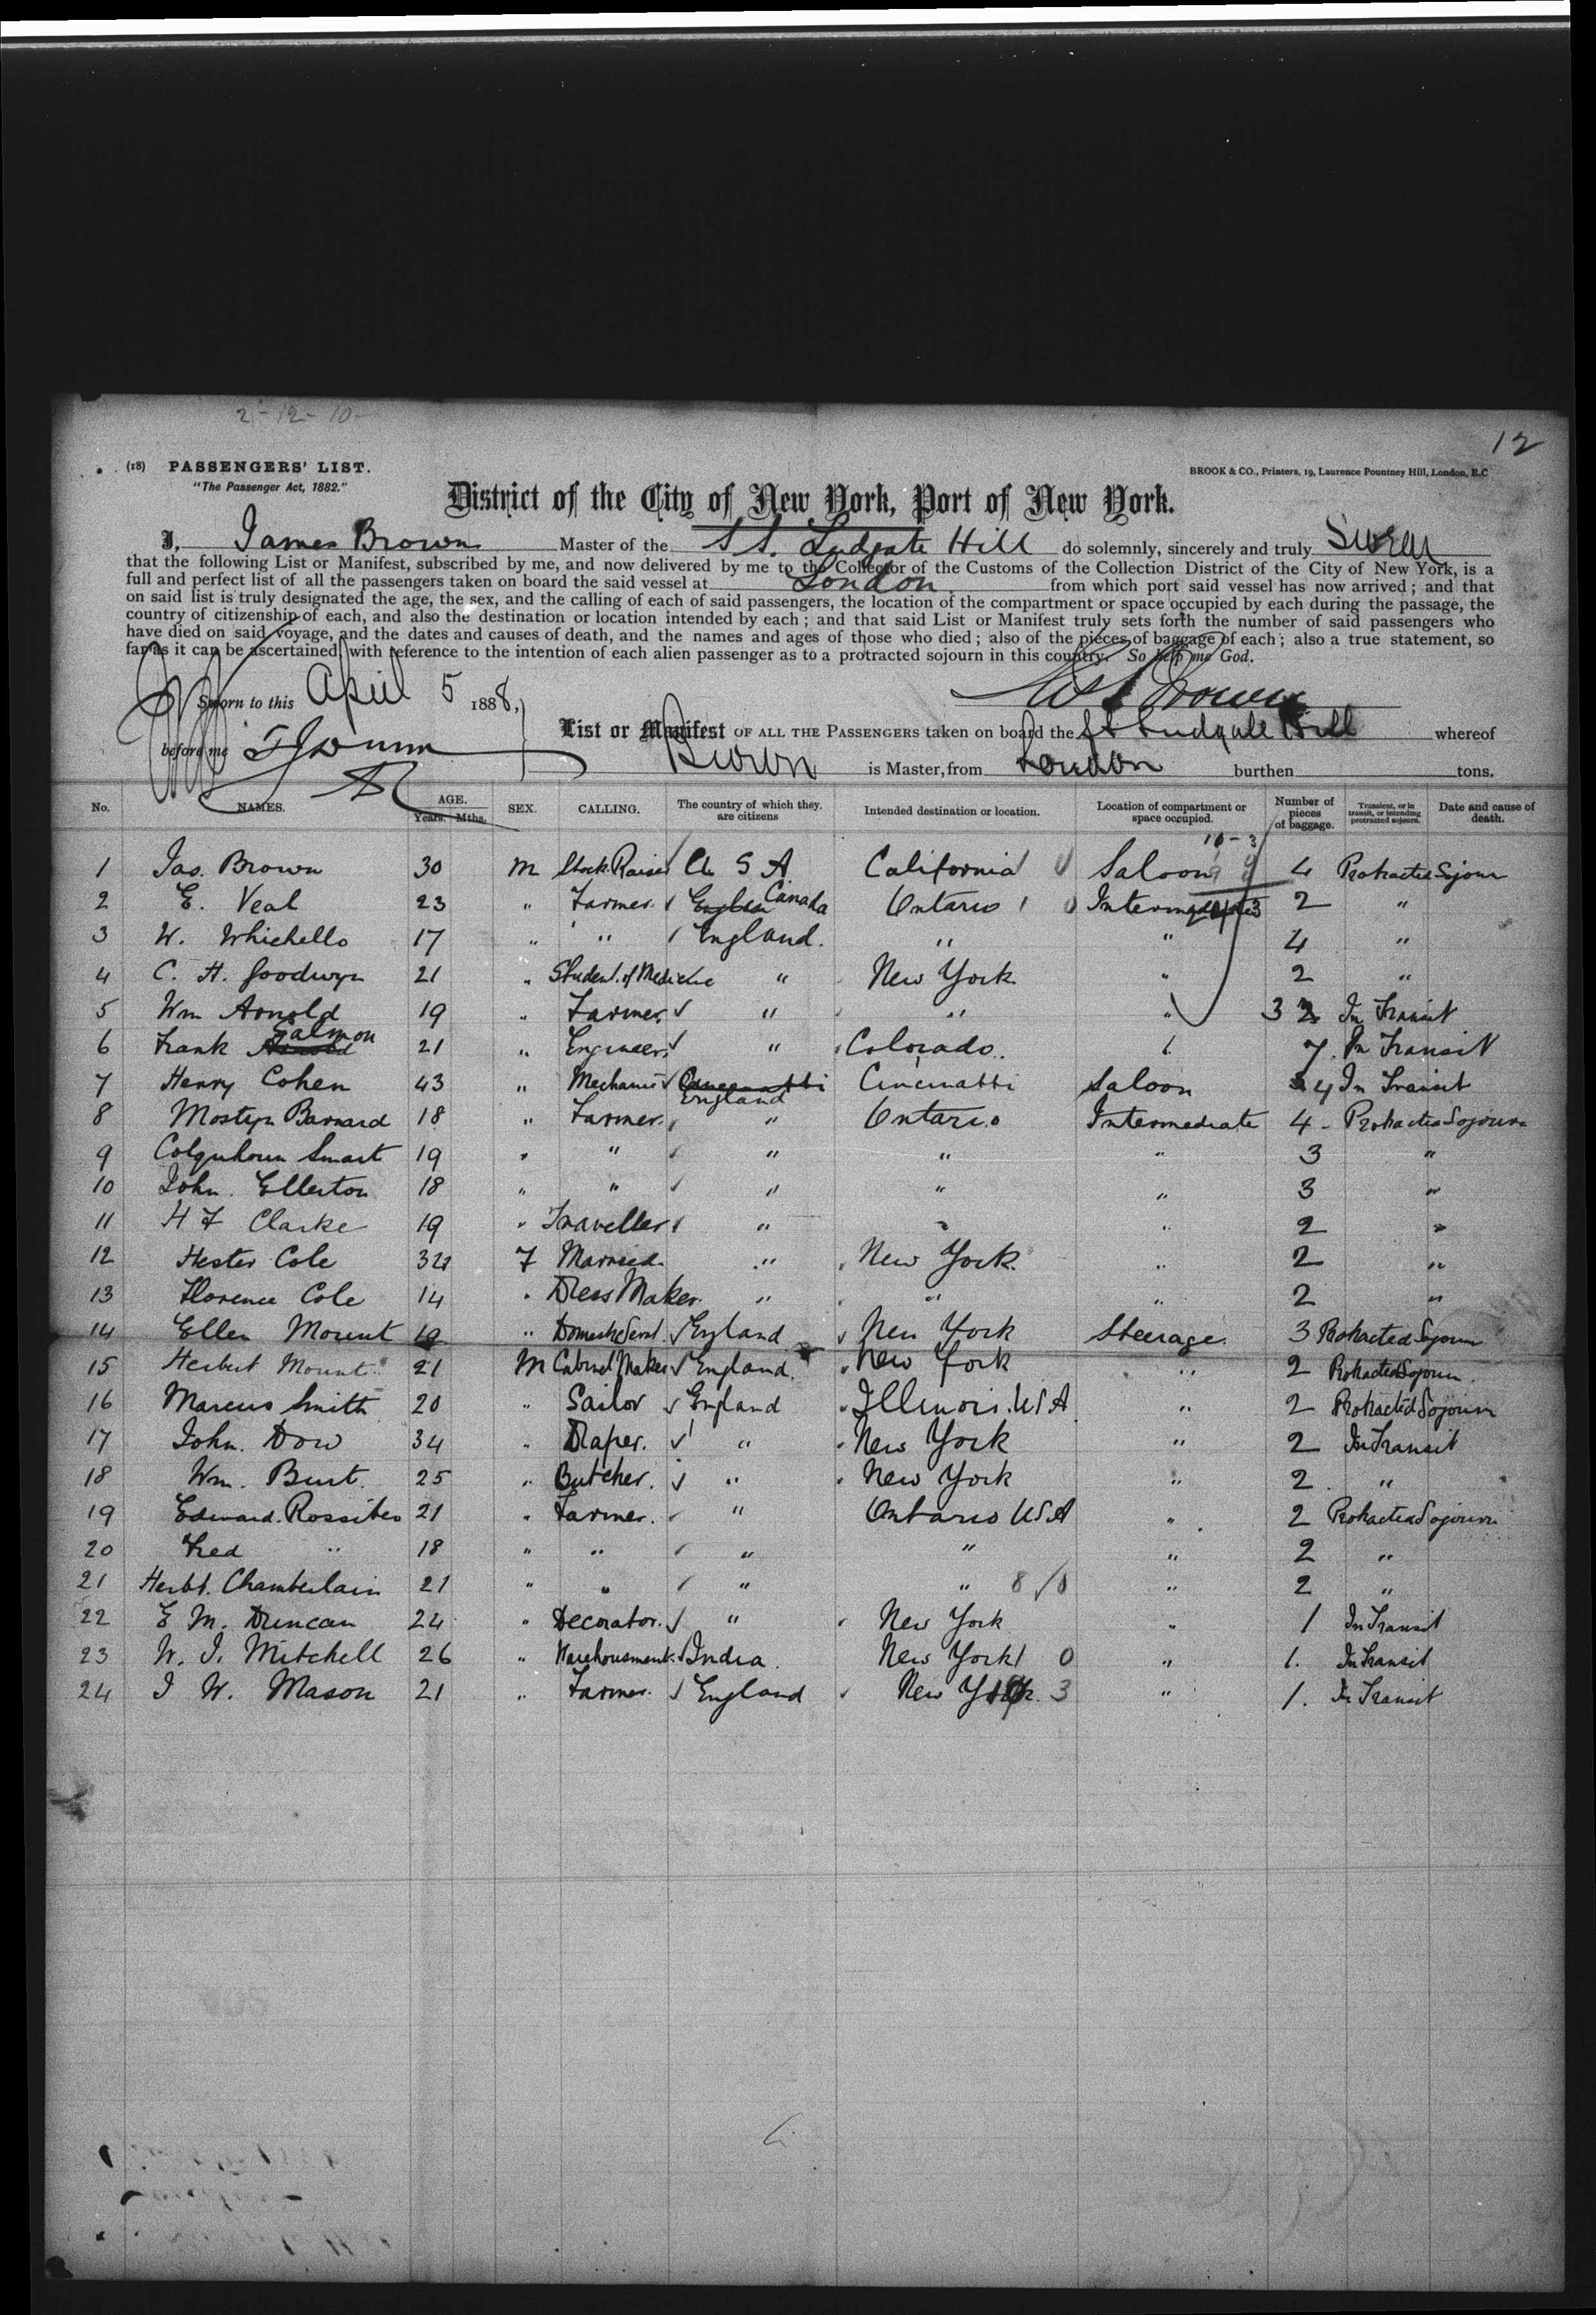 2-12-10-
12
(18) PASSENGERS' LIST.
BROOK & CO., Printers, 19, Laurence Pountney Hill, London, E.C
"The Passenger Act, 1882."
District of the City of New York, Port of New York.
I, James Brown Master of the S S. Ludgate Hill do solemnly, sincerely and truly Swear
that the following List or Manifest, subscribed by me, and now delivered by me to the Collector of the Customs of the Collection District of the City of New York, is a
full and perfect list of all the passengers taken on board the said vessel at London from which port said vessel has now arrived; and that
on said list is truly designated the age, the sex, and the calling of each of said passengers, the location of the compartment or space occupied by each during the passage, the
country of citizenship of each, and also the destination or location intended by each; and that said List or Manifest truly sets forth the number of said passengers who
have died on said voyage, and the dates and causes of death, and the names and ages of those who died; also of the pieces of baggage of each; also a true statement, so
far as it can be ascertained with reference to the intention of each alien passenger as to a protracted sojourn in this country. So help me God.
Sworn to this April 5 1888,
before me
List or Manifest OF ALL THE PASSENGERS taken on board the SS Ludgate Hill whereof
Brown is Master, from London burthen tons.
No. NAMES. AGE. Years. Mths. SEX. CALLING. The country of which they are citizens Intended destination or location. Location of compartment or space occupied. Number of pieces of baggage. Transient, or in transit, or intending protracted sojourn. Date and cause of death.
1 Jas. Brown 30 M Stock Raiser U S A California Saloon 4 Protracted Sojourn
2 E. Veal 23 " Farmer Canada Ontario Intermediate 2 "
3 W. Whichello 17 " " England. " " 4 "
4 C. H. Goodwyn 21 " Student of Medicine " New York " 2 "
5 Wm Arnold 19 " Farmer. " " " 3 In Transit
6 Frank Salmon 21 " Engineer. " Colorado. " 7. In Transit
7 Henry Cohen 43 " Mechanic England Cincinatti Saloon 4 In Transit
8 Mostyn Barnard 18 " Farmer. " Ontario Intermediate 4 - Protracted Sojourn
9 Colquhoun Smart 19 " " " " " 3 "
10 John. Ellerton 18 " " " " " 3 "
11 H F Clarke 19 " Traveller " " " 2 "
12 Hester Cole 32 F Married. " New York. " 2 "
13 Florence Cole 14 " Dress Maker. " " " 2 "
14 Ellen Mount 19 " Domestic Servt. England New York Steerage. 3 Protracted Sojourn
15 Herbert Mount 21 M Cabinet Maker England. New York " 2 Protracted Sojourn.
16 Marcus Smith 20 " Sailor England Illinois. USA " 2 Protracted Sojourn
17 John. Dow 34 " Draper. " New York " 2 In Transit
18 Wm. Burt. 25 " Butcher. " New York " 2 "
19 Edward. Rossiter 21 " Farmer. " Ontario USA " 2 Protracted Sojourn
20 Fred " 18 " " " " " 2 "
21 Herbt. Chamberlain 21 " " " " " 2 "
22 E M. Duncan 24 " Decorator. " New York " 1 In Transit
23 W. J. Mitchell 26 " Warehousement. India. New York " 1. In Transit
24 J W. Mason 21 " Farmer. England New York. " 1. In Transit